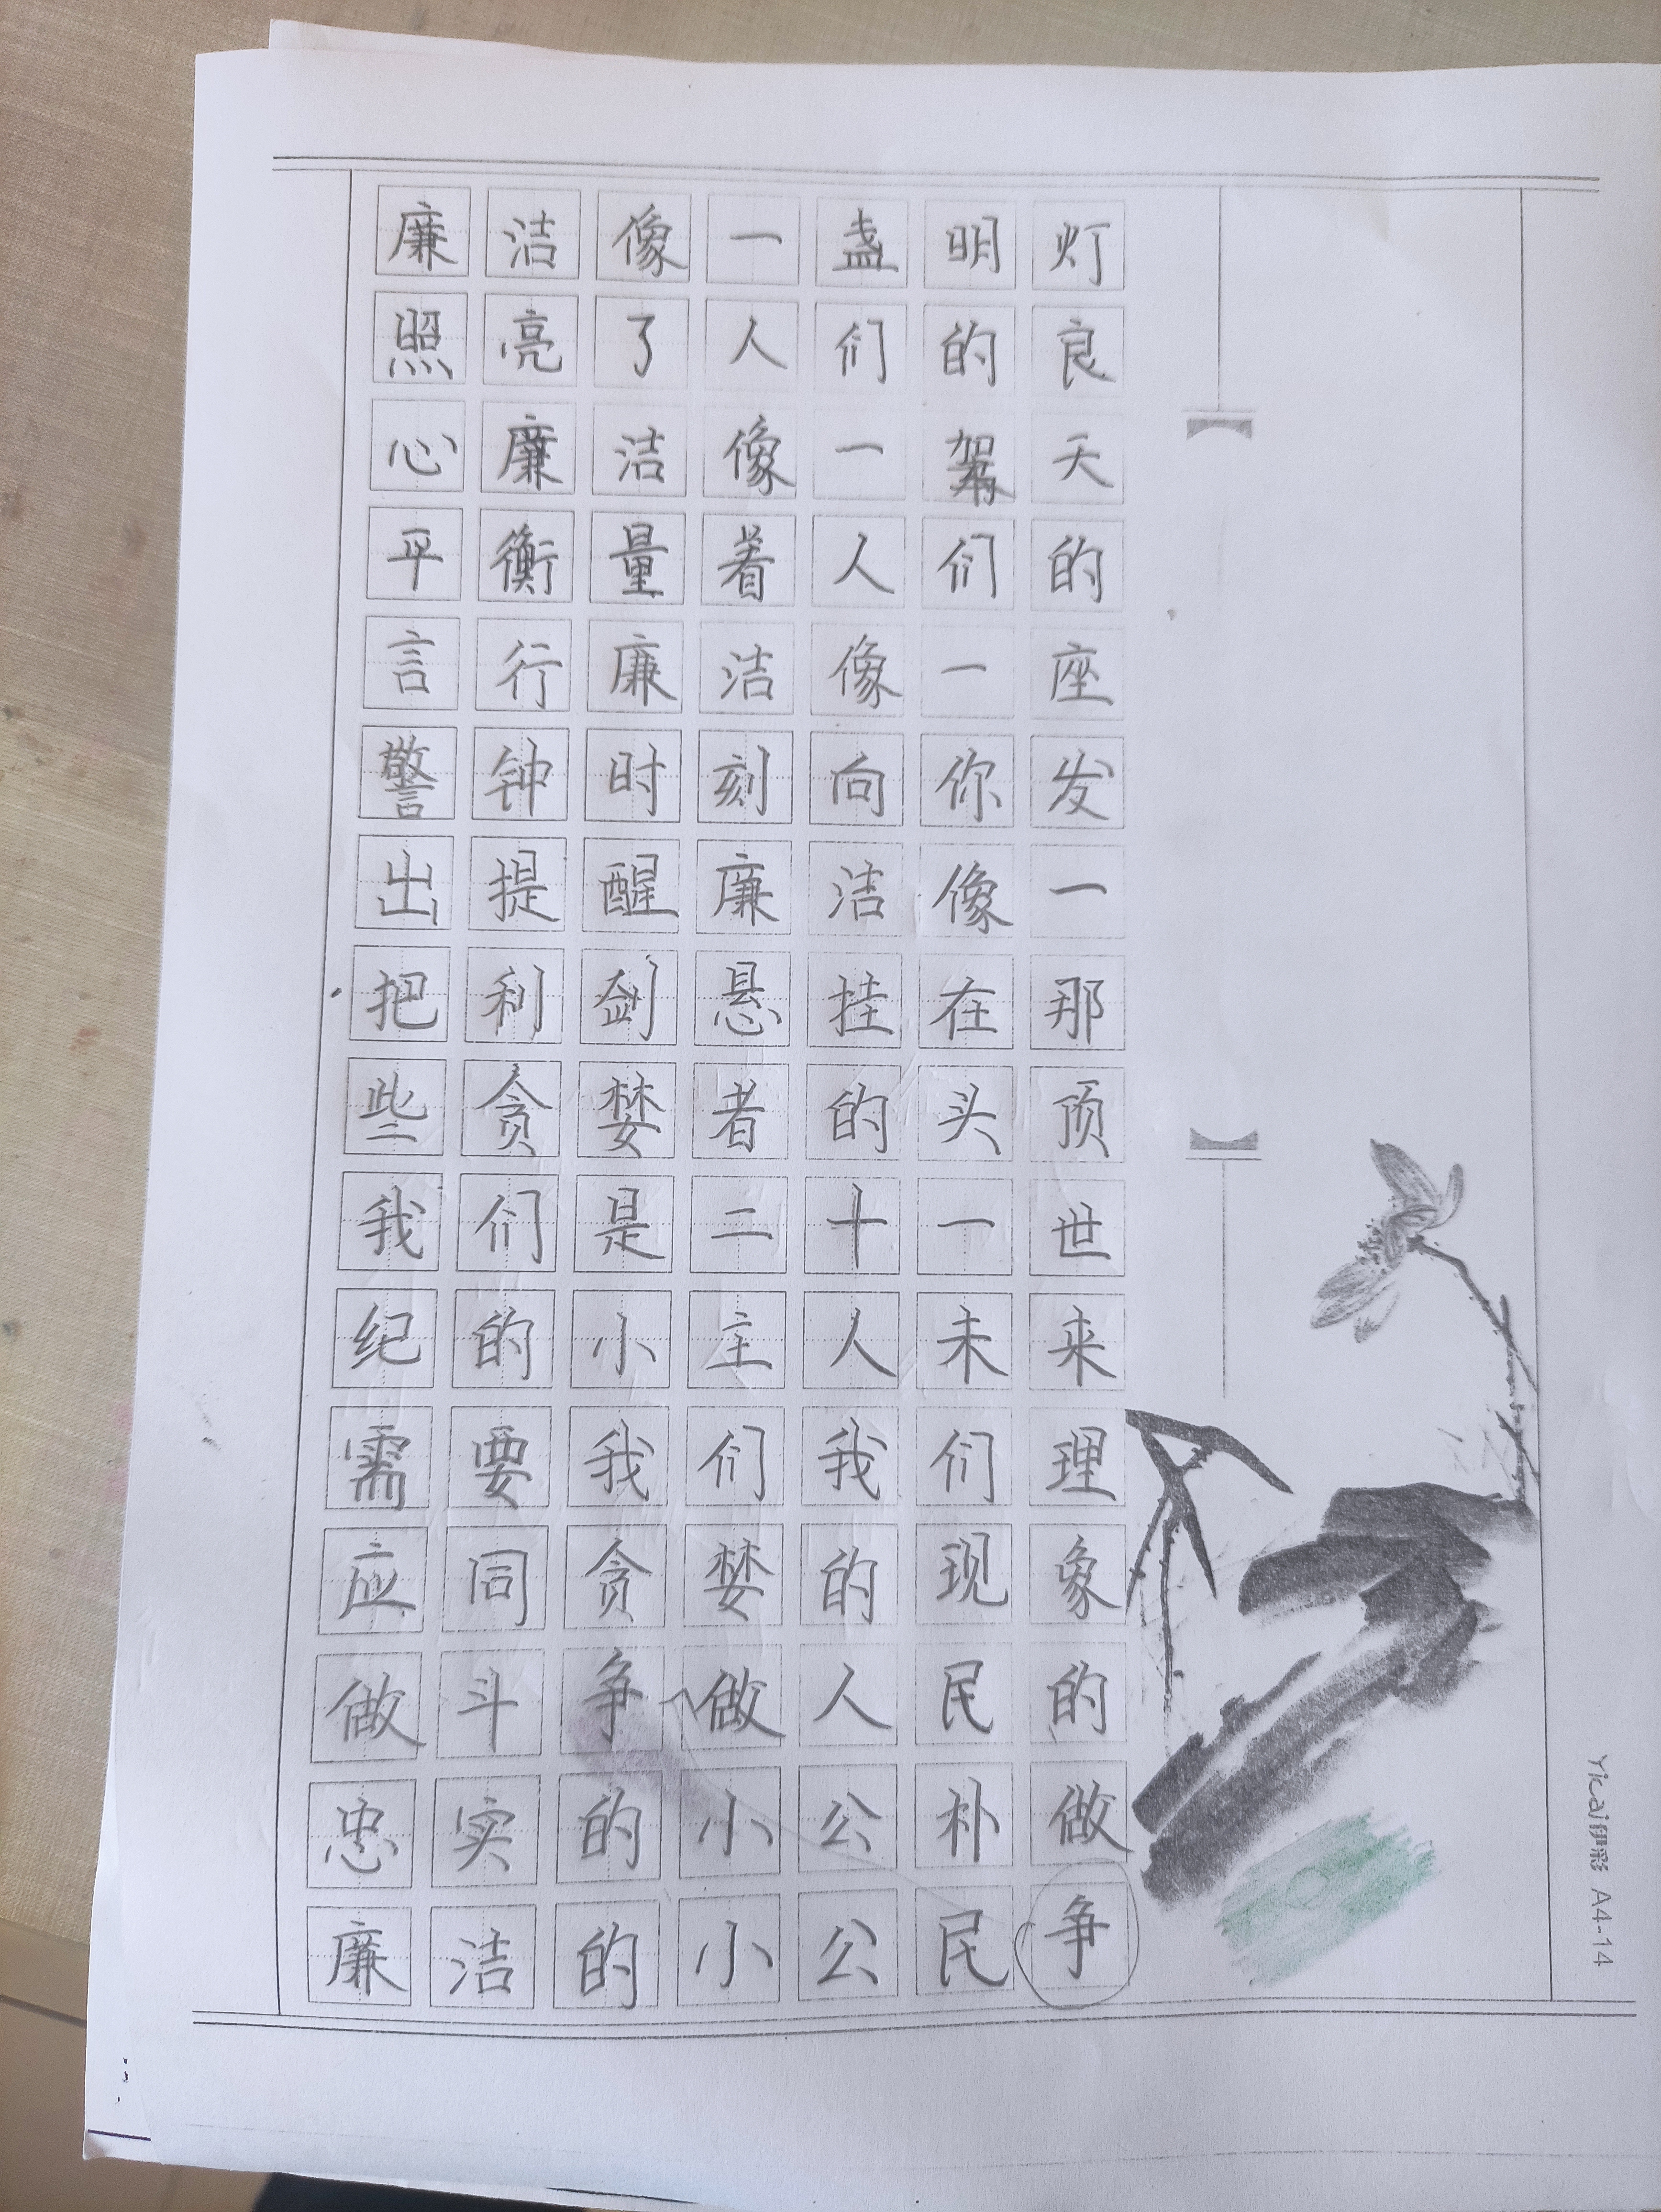 廉洁像一盏明灯
照亮了人们的良
心廉洁像一天
平衡量着人们的
言行廉洁像一座
警钟时刻向你发
出提醒廉洁像一
把利剑悬挂在那
些贪婪者的头顶
我们是二十一世
纪的小主人未来
需要我们我们理
应同贪婪的现象
做斗争做人民的
忠实的小公朴做
廉洁的小公民争
Yicai伊彩 A4-14